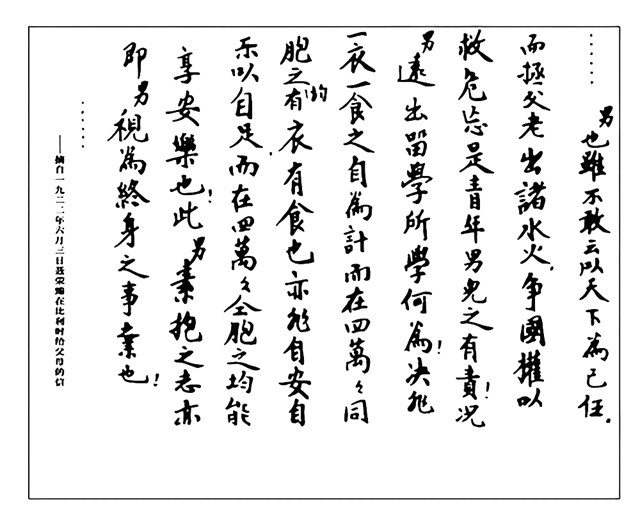 ……
男也雖不敢云以天下為己任.
而拯父老出諸水火,爭國權以
救危忘是青年男兒之有責!况
男遠出留學所學何為!决非
一衣一食之自為計而在四萬々同
胞之均有衣有食也亦非自安自
乐以自足,而在四萬々仝胞之均能
享安樂也!此男素抱之志亦
即男視為終身之事業也!
……
——摘自一九二二年六月三日聂荣臻在比利时给父母的信